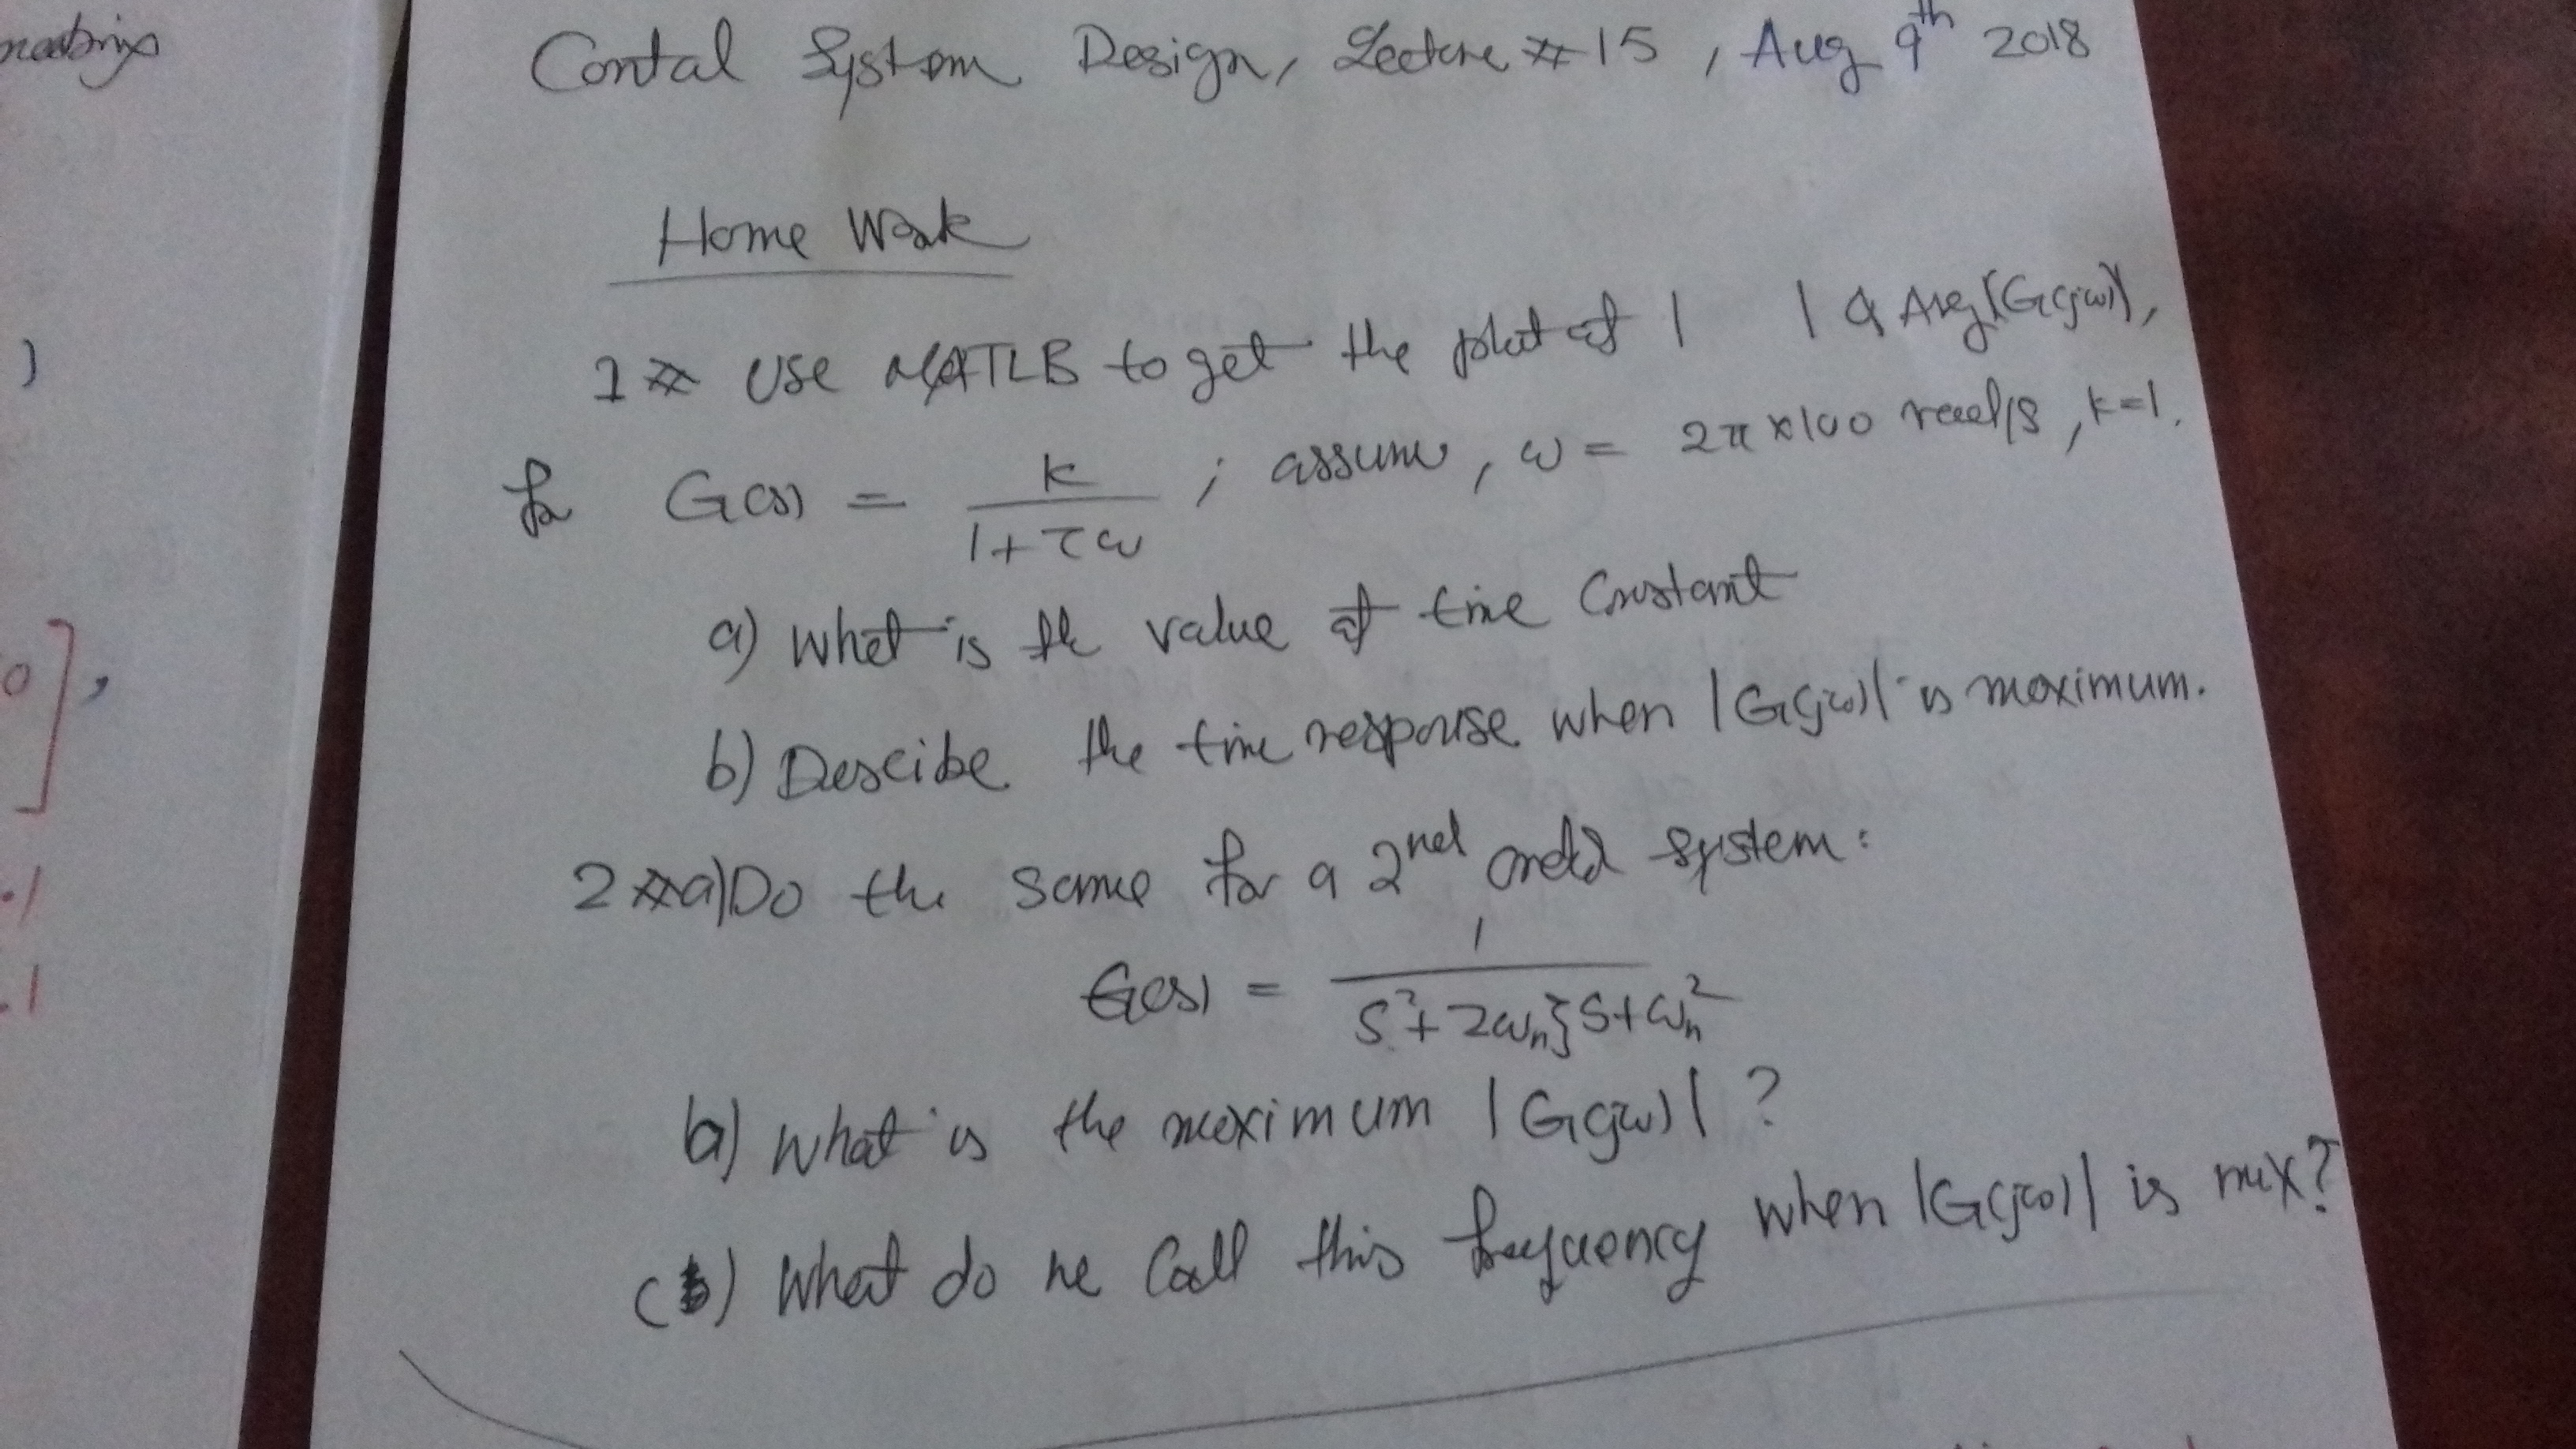 matrix
Contal System Design, Lecture # 15, Aug 9th 2018
Home Work
)
1# Use MATLB to get the plot of | | & Arg(G(jω)),
for G(s) = k / (1+τω) ; assume, ω = 2π×100 rad/s, k=1.
a) What is the value of time Constant
0],
b) Descibe the time response when |G(jω)| is maximum.
2#a) Do the same for a 2nd order system:
.1
G(s) = 1 / (s²+2ωnξs+ωn²)
.1
b) What is the maximum |G(jω)| ?
(c) What do we Call this frequency when |G(jω)| is max?